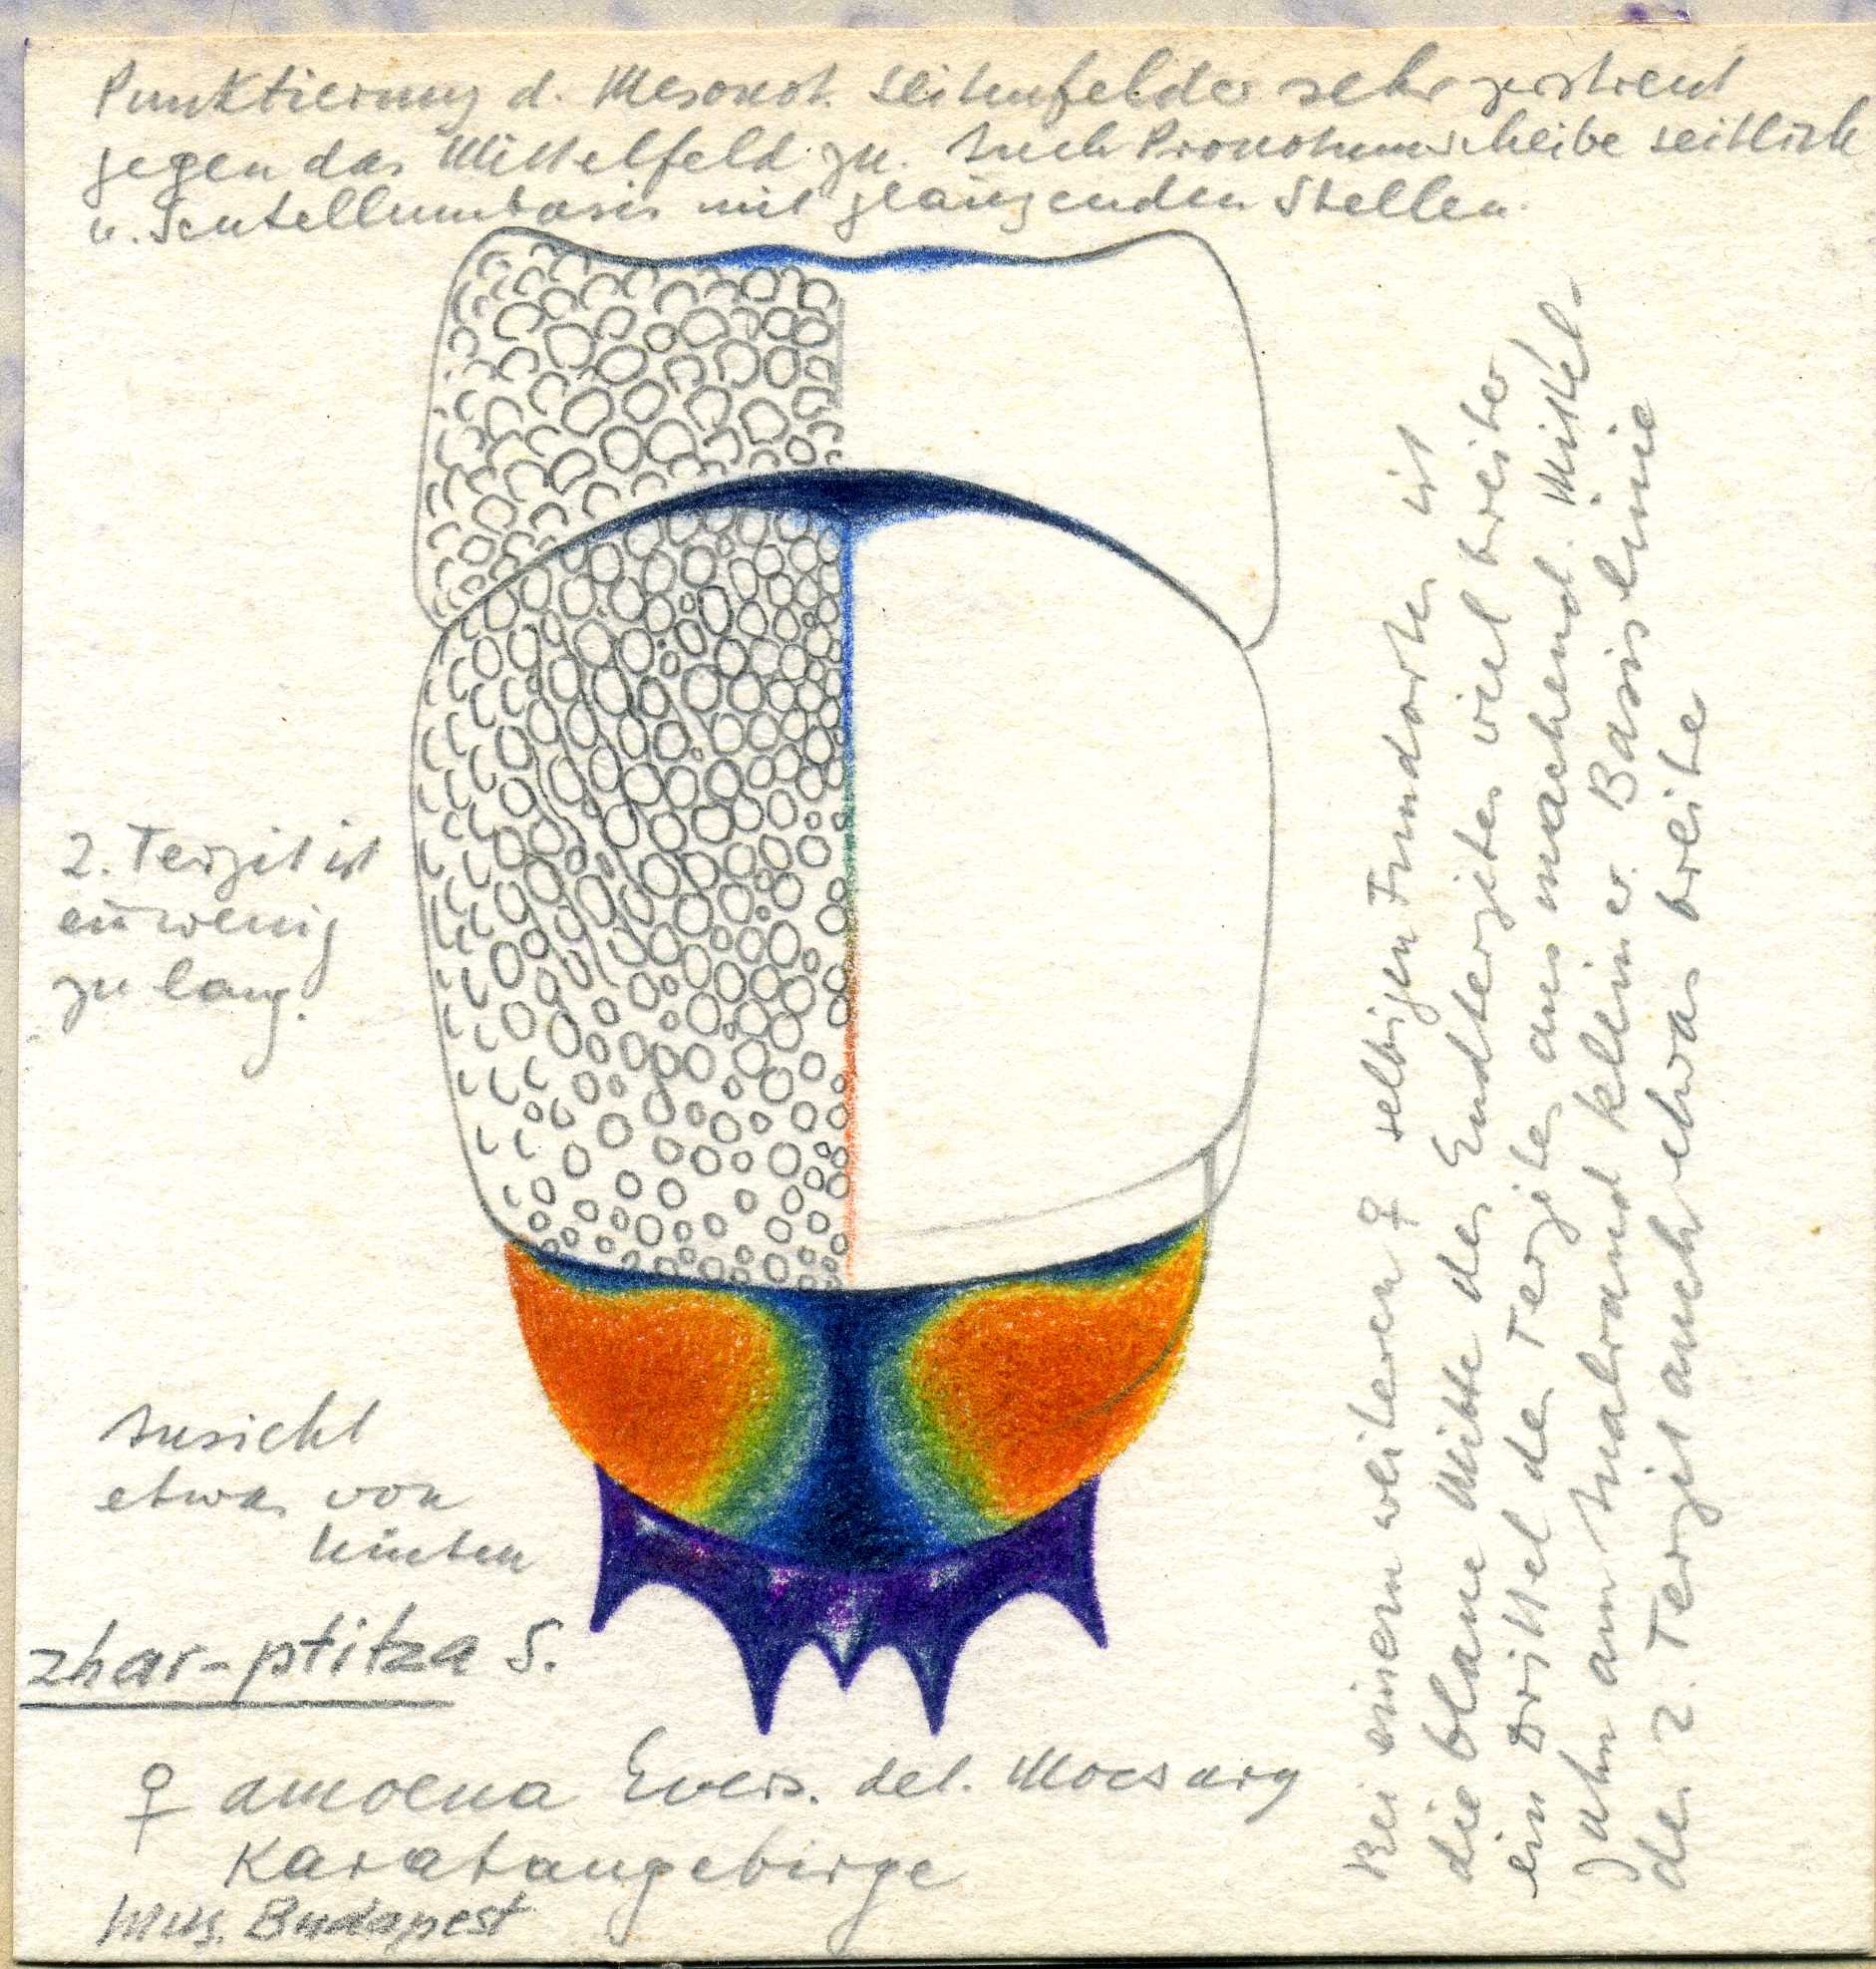 Punktierung d. Mesonot. Seitenfelder sehr zerstreut
gegen das Mittelfeld zu. Auch Pronotumscheibe seitlich
u. Scutellumbasis mit glänzenden Stellen.
2. Tergit ist
ein wenig
zu lang.
Ansicht
etwas von
hinten
zhar-ptitza S.
♀ amoena Evers. det. Mocsary
Karataugebirge
Mus. Budapest
Bei einem weiteren ♀ selbigen Fundortes ist
die blaue Mitte des Endtergites viel breiter
ein Drittel des Tergites ausmachend. Mittel-
zahn am Analrand kleiner. Basislinie
des 2. Tergit auch etwas breiter